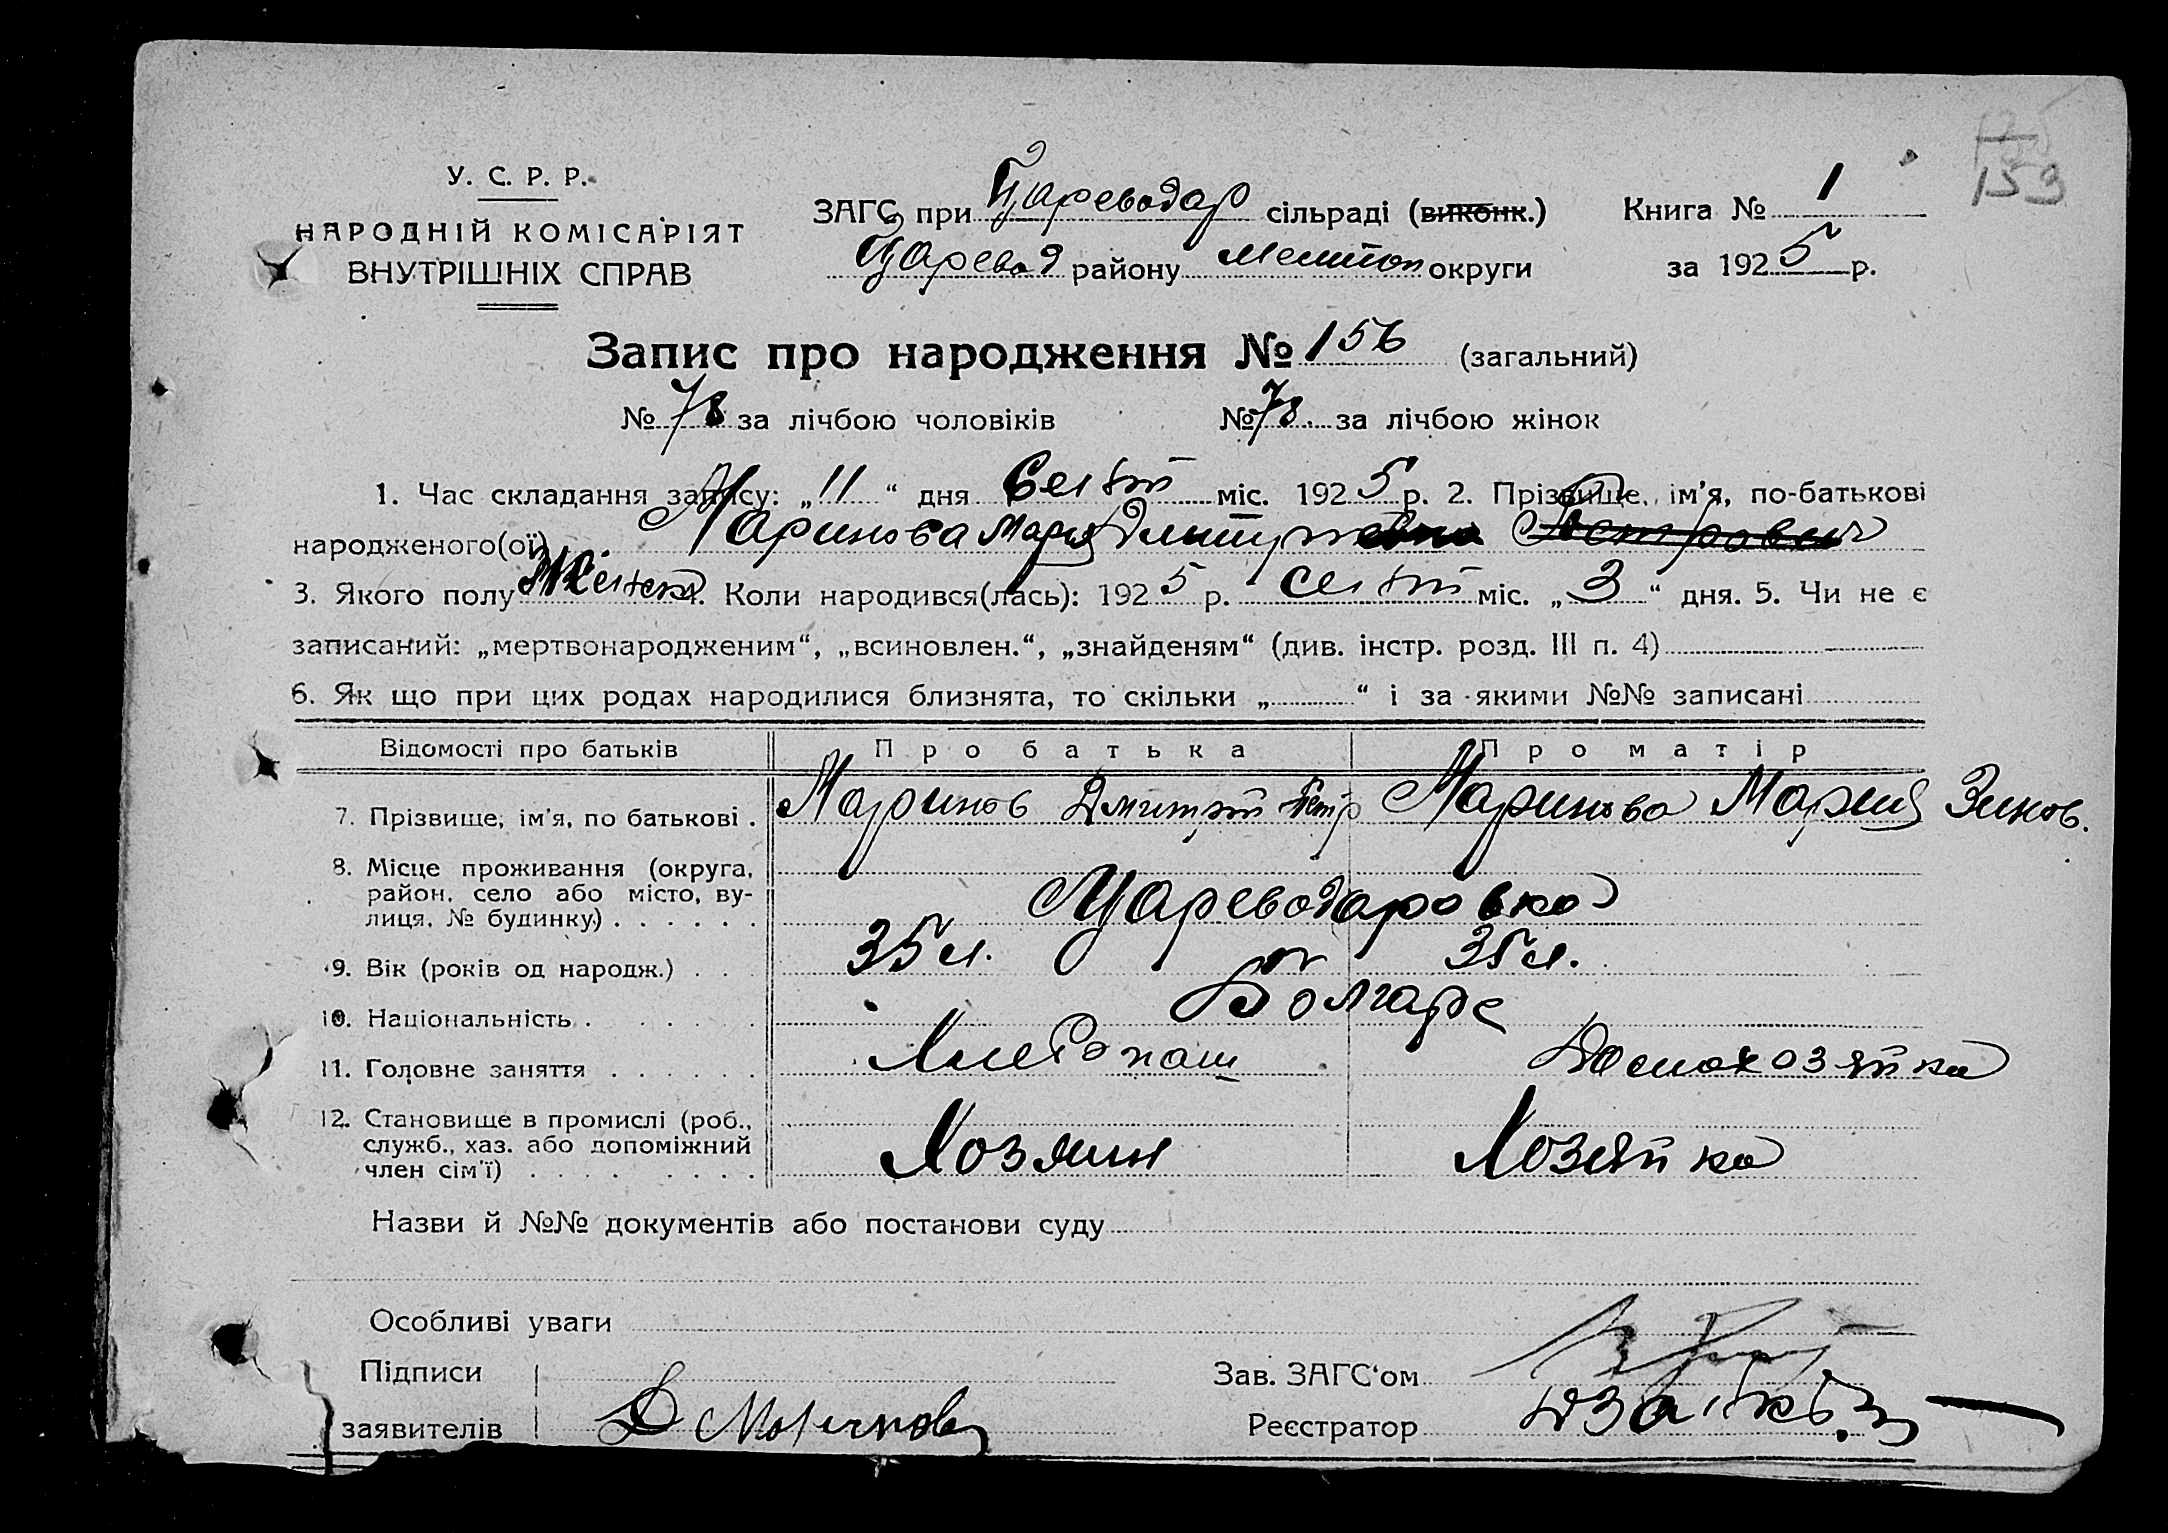 153
У. С. Р. Р.
НАРОДНІЙ КОМІСАРІЯТ
ВНУТРІШНІХ СПРАВ
ЗАГС при Цареводар сільраді (виконк.)
Царевод району Мелитоп округи
Книга № 1
за 1925 р.
Запис про народження № 156 (загальний)
№ 78 за лічбою чоловіків № 78 за лічбою жінок
1. Час складання запису: „ 11 “ дня Сент міс. 1925 р. 2. Прізвище, ім'я, по-батькові
народженого(ої) Маринова Мария Дмитриевна Петровна
3. Якого полу Женск. Коли народився(лась): 1925 р. Сент міс. „ 3 “ дня. 5. Чи не є
записаний: „мертвонародженим“, „всиновлен.“, „знайденям“ (див. інстр. розд. III п. 4)
6. Як що при цих родах народилися близнята, то скільки „ “ і за якими №№ записані
Відомості про батьків Про батька Про матір
7. Прізвище, ім'я, по батькові . Маринов Дмитрий Петр Маринова Мария Зинов.
8. Місце проживання (округа,
район, село або місто, ву-
лиця, № будинку) . . . . . . Цареводаровка
9. Вік (років од народж.) . . . 35 л. 35 л.
10. Національність . . . . . . Болгаре
11. Головне заняття . . . . . . Хлебопаш Домохозяйка
12. Становище в промислі (роб.,
служб., хаз. або допоміжний
член сім'ї) . . . . . . . . Хозяин Хозяйка
Назви й №№ документів або постанови суду
Особливі уваги
Підписи
заявителів Д Маринов
Зав. ЗАГС'ом
Реєстратор